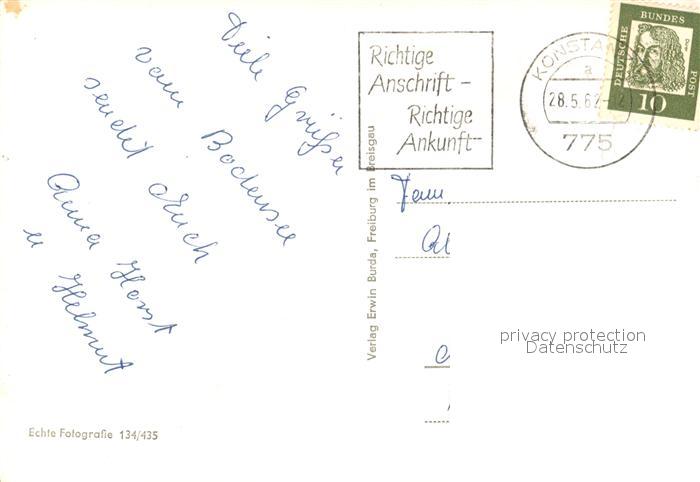 Viele Grüße
vom Bodensee
sendet Euch
Anna Horst
u Helmut
Echte Fotografie 134/435
Verlag Erwin Burda, Freiburg im Breisgau
Richtige
Anschrift -
Richtige
Ankunft
KONSTAN
a
28.5.62-12
775
DEUTSCHE BUNDES POST
10
Fam.
privacy protection
Datenschutz